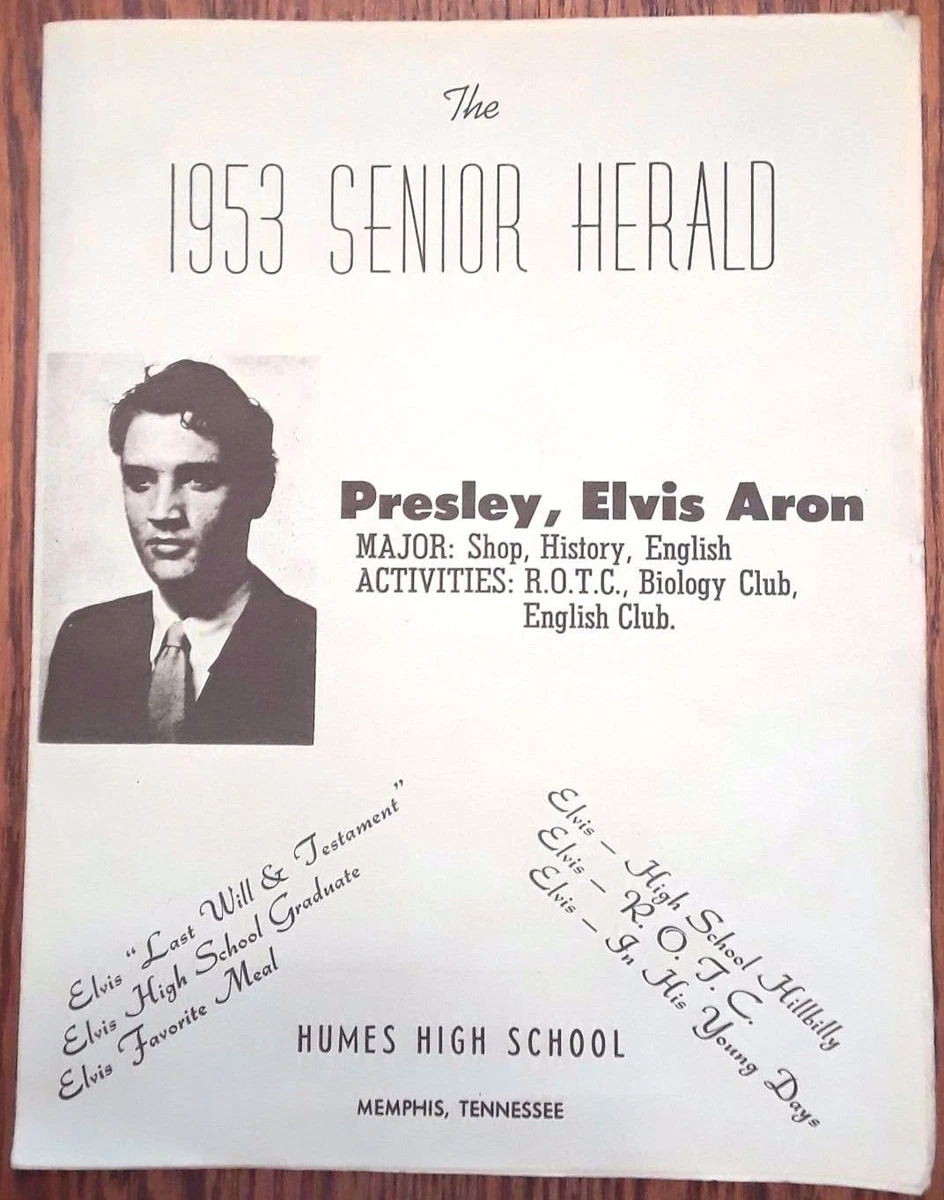 The
1953 SENIOR HERALD
Presley, Elvis Aron
MAJOR: Shop, History, English
ACTIVITIES: R.O.T.C., Biology Club,
English Club.
Elvis "Last Will & Testament"
Elvis High School Graduate
Elvis Favorite Meal
Elvis – High School Hillbilly
Elvis – R. O. T. C.
Elvis – In His Young Days
HUMES HIGH SCHOOL
MEMPHIS, TENNESSEE